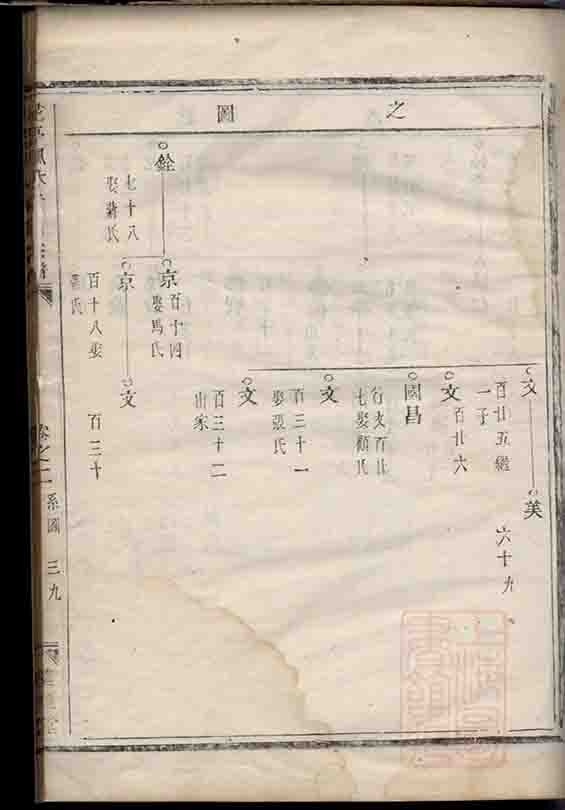 之
圖
文
百廿五繼
一子
美
六十九
文
百廿六
國昌
行文百廿
七娶顏氏
文
百三十一
娶張氏
文
百三十二
出家
銓
七十八
娶蔣氏
京
百十四
娶馬氏
京
百十八娶
氏
文
百三十
卷之二
系圖
三九